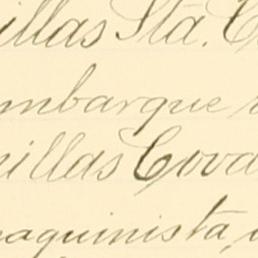 illas Sta. C
mbarque
illas Cova
aquinista,